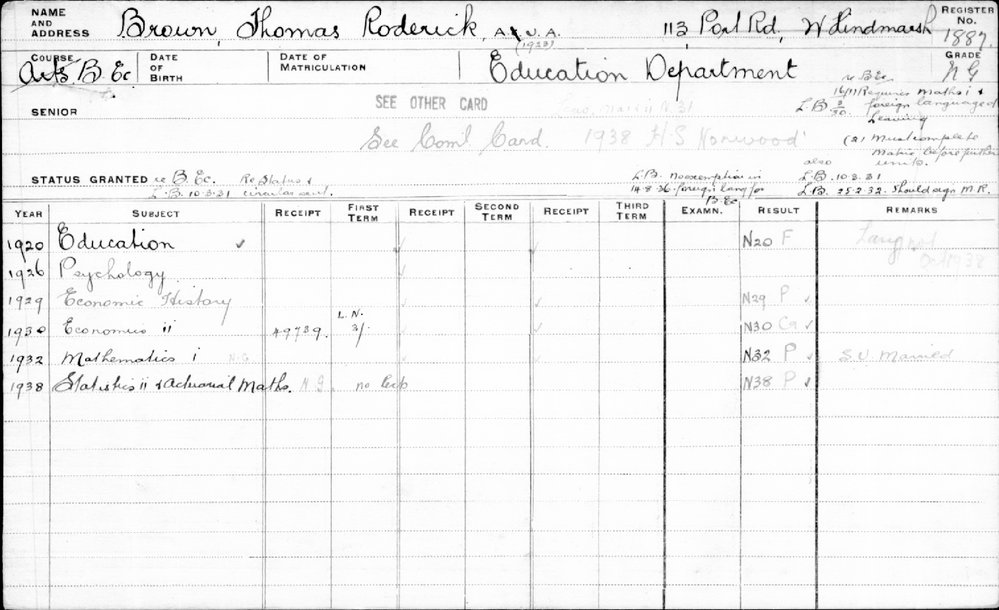 NAME AND ADDRESS Brown, Thomas Roderick, A.U.A. (1923) 113, Port Rd, W Hindmarsh REGISTER No. 1887.
COURSE Arts B. Ec. DATE OF BIRTH DATE OF MATRICULATION Education Department GRADE N G
SEE OTHER CARD
re B.Ec.
16/11 Requires Maths i &
L.B. 2/30. foreign language at
Leaving
SENIOR
See Com'l Card. 1938 H S Norwood
(2) Must complete
Matric before further
units.
also
STATUS GRANTED re B. Ec. Re Status &
L.B. 10.3.31 circular sent.
L.B. No exemption in
14.8.36 foreign lang for
B.Ec
L.B. 10.3.31
L.B. 25.2.32. Should sign M.R.
YEAR SUBJECT RECEIPT FIRST TERM RECEIPT SECOND TERM RECEIPT THIRD TERM EXAMN. RESULT REMARKS
1920 Education N20 F
1926 Psychology
1929 Economic History N29 P
1930 Economics ii 49739. L.N. 3/. N30
1932 Mathematics i N.G. N32 P S.U. Married
1938 Statistics ii & Actuarial Maths. N G. no N38 P